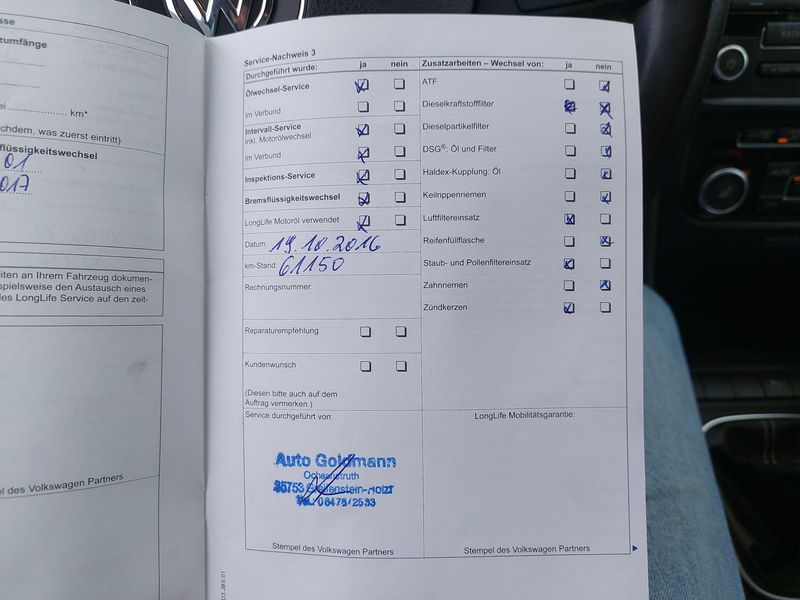 sse
zumfänge
ei ........................ km*
chdem, was zuerst eintritt)
flüssigkeitswechsel
01
017
eiten an Ihrem Fahrzeug dokumen-
spielsweise den Austausch eines
des LongLife Service auf den zeit-
el des Volkswagen Partners
Service-Nachweis 3
Durchgeführt wurde: ja nein
Ölwechsel-Service
im Verbund
Intervall-Service
inkl. Motorölwechsel
im Verbund
Inspektions-Service
Bremsflüssigkeitswechsel
LongLife Motoröl verwendet
Datum: 19.10.2016
km-Stand: 61150
Rechnungsnummer:
Reparaturempfehlung
Kundenwunsch
(Diesen bitte auch auf dem
Auftrag vermerken.)
Service durchgeführt von:
Auto Goldmann
Ochsenstruth
35753 Greifenstein-Holzh
Tel. 06478/2533
Stempel des Volkswagen Partners
Zusatzarbeiten – Wechsel von: ja nein
ATF
Dieselkraftstofffilter
Dieselpartikelfilter
DSG®: Öl und Filter
Haldex-Kupplung: Öl
Keilrippenriemen
Luftfiltereinsatz
Reifenfüllflasche
Staub- und Pollenfiltereinsatz
Zahnriemen
Zündkerzen
LongLife Mobilitätsgarantie:
Stempel des Volkswagen Partners
RADIO